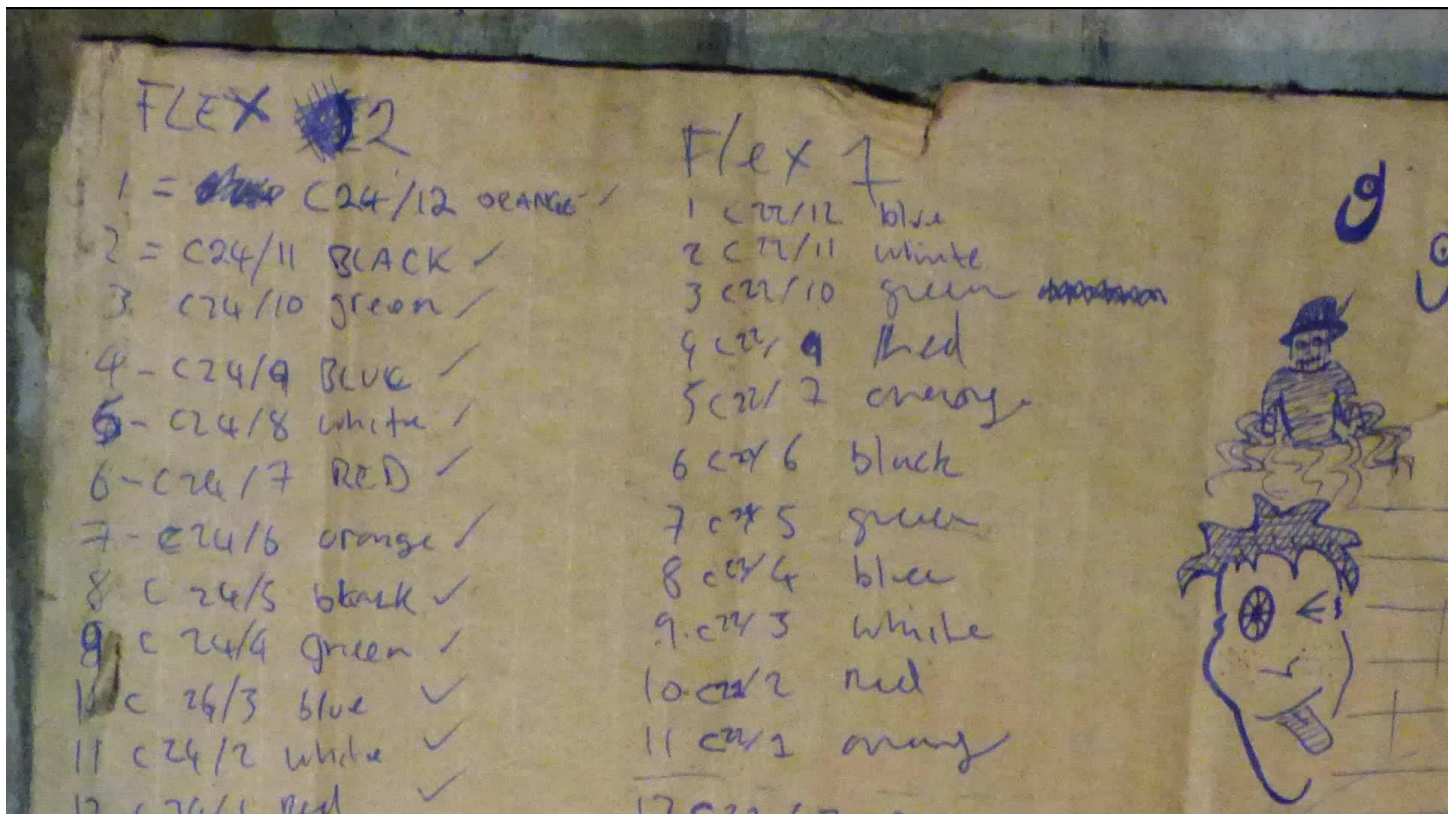 FLEX 2
1 = C24/12 ORANGE ✓
2 = C24/11 BLACK ✓
3. C24/10 green ✓
4 - C24/9 BLUE ✓
5 - C24/8 white ✓
6 - C24/7 RED ✓
7 - C24/6 orange ✓
8 C 24/5 black ✓
9 C 24/4 green ✓
C 24/3 blue ✓
11 C 24/2 white ✓
12 C 24/1 Red ✓
Flex 1
1 C22/12 blue
2 C22/11 white
3 C22/10 green
4 C22/9 Red
5 C22/7 orange
6 C22/6 black
7 C22/5 green
8 C22/4 blue
9. C22/3 white
10. C22/2 Red
11 C22/1 orang
12